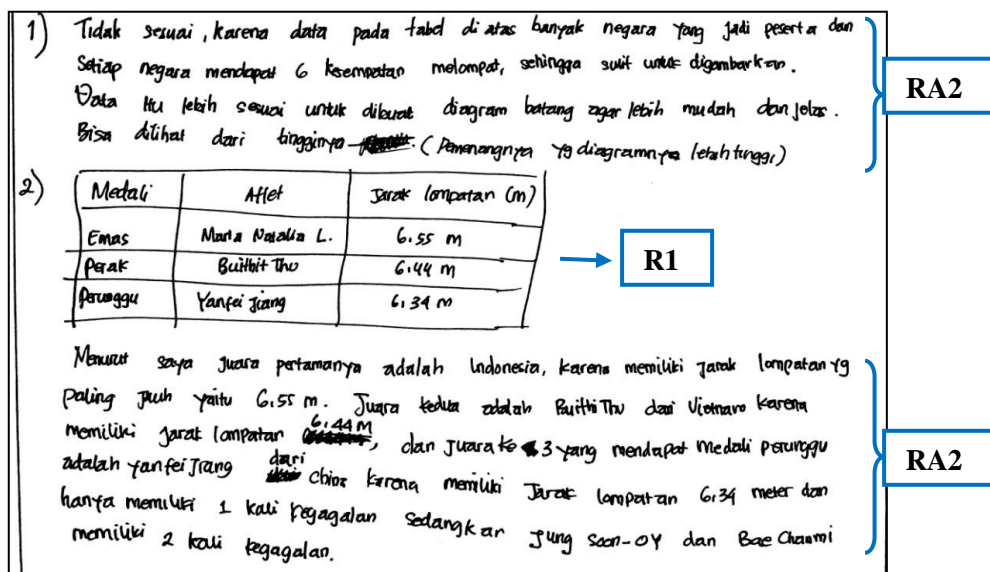 1) Tidak sesuai, karena data pada tabel di atas banyak negara yang jadi peserta dan
Setiap negara mendapat 6 kesempatan melompat, sehingga sulit untuk digambarkan.
Data itu lebih sesuai untuk dibuat diagram batang agar lebih mudah dan jelas.
Bisa dilihat dari tingginya. (Pemenangnya yg diagramnya lebih tinggi)
RA2
2)
Medali Atlet Jarak lompatan (m)
Emas Maria Natalia L. 6.55 m
Perak Buithit Thu 6.44 m
Perunggu Yanfei Jiang 6.34 m
R1
Menurut saya Juara pertamanya adalah Indonesia, karena memiliki jarak lompatan yg
paling jauh yaitu 6.55 m. Juara kedua adalah Buithi Thu dari Vietnam karena
memiliki jarak lompatan 6.44 m, dan Juara ke 3 yang mendapat medali perunggu
adalah yanfei Jiang dari China karena memiliki Jarak lompatan 6.34 meter dan
hanya memiliki 1 kali kegagalan sedangkan Jung Soon-OY dan Bae Chanmi
memiliki 2 kali kegagalan.
RA2